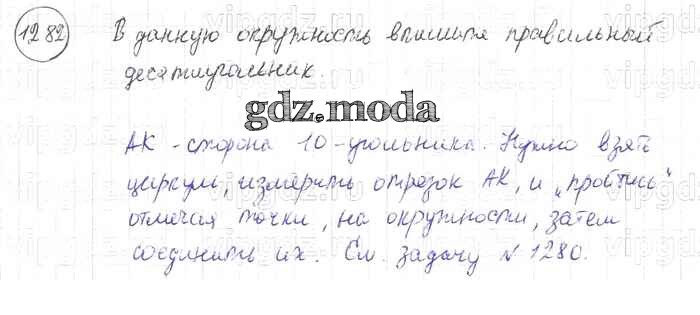 1282 В данную окружность впишите правильный
десятиугольник.
gdz.moda
АК - сторона 10-угольника. Нужно взять
циркуль, измерить отрезок АК, и „пройтись“
отмечая точки, на окружности, затем
соединить их. См. задачу № 1280.